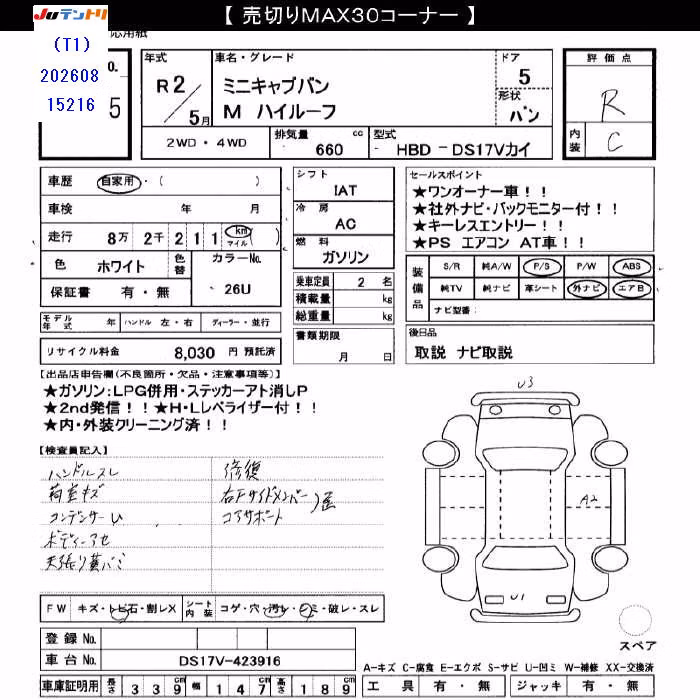 JUテントリ
【 売切りMAX30コーナー 】
応用紙
(T1)
202608
15216
o.
5
年式
R2/5月
車名・グレード
ミニキャブバン
M ハイルーフ
ドア
5
形状
バン
評価点
R
内装
C
2WD・4WD
排気量 660 cc
型式 HBD-DS17Vカイ
車歴 自家用・( )
車検 年 月
走行 8万 2千 2 1 1 km マイル ( )
色 ホワイト
色替
カラーNo.
26U
保証書 有・無
シフト
IAT
冷房
AC
燃料
ガソリン
乗車定員 2 名
積載量 kg
総重量 kg
セールスポイント
★ワンオーナー車!!
★社外ナビ・バックモニター付!!
★キーレスエントリー!!
★PS エアコン AT車!!
装備品
S/R 純A/W P/S P/W ABS
純TV 純ナビ 革シート 外ナビ エアB
ナビ型番:
モデル年式 年 ハンドル 左・右 ディーラー・並行
書類期限
月 日
後日品
取説 ナビ取説
リサイクル料金 8,030 円 預託済
【出品店申告欄(不良箇所・欠品・注意事項等)】
★ガソリン:LPG併用・ステッカーアト消しP
★2nd発信!!★H・Lレベライザー付!!
★内・外装クリーニング済!!
【検査員記入】
ハンドルスレ
荷室キズ
コンデンサーU
ボディーアセ
天張り黄バミ
修復
右Fサイドメンバー
コアサポート
U3
A2
U1
FW キズ・トビ石・割レX
シート内装 コゲ・穴・汚レ・シミ・破レ・スレ
登録No.
車台No. DS17V-423916
スペア
A-キズ C-腐食 E-エクボ S-サビ U-凹ミ W-補修 XX-交換済
車庫証明用 長さ 3 3 9 cm 幅 1 4 7 cm 高さ 1 8 9 cm
工具 有・無 ジャッキ 有・無